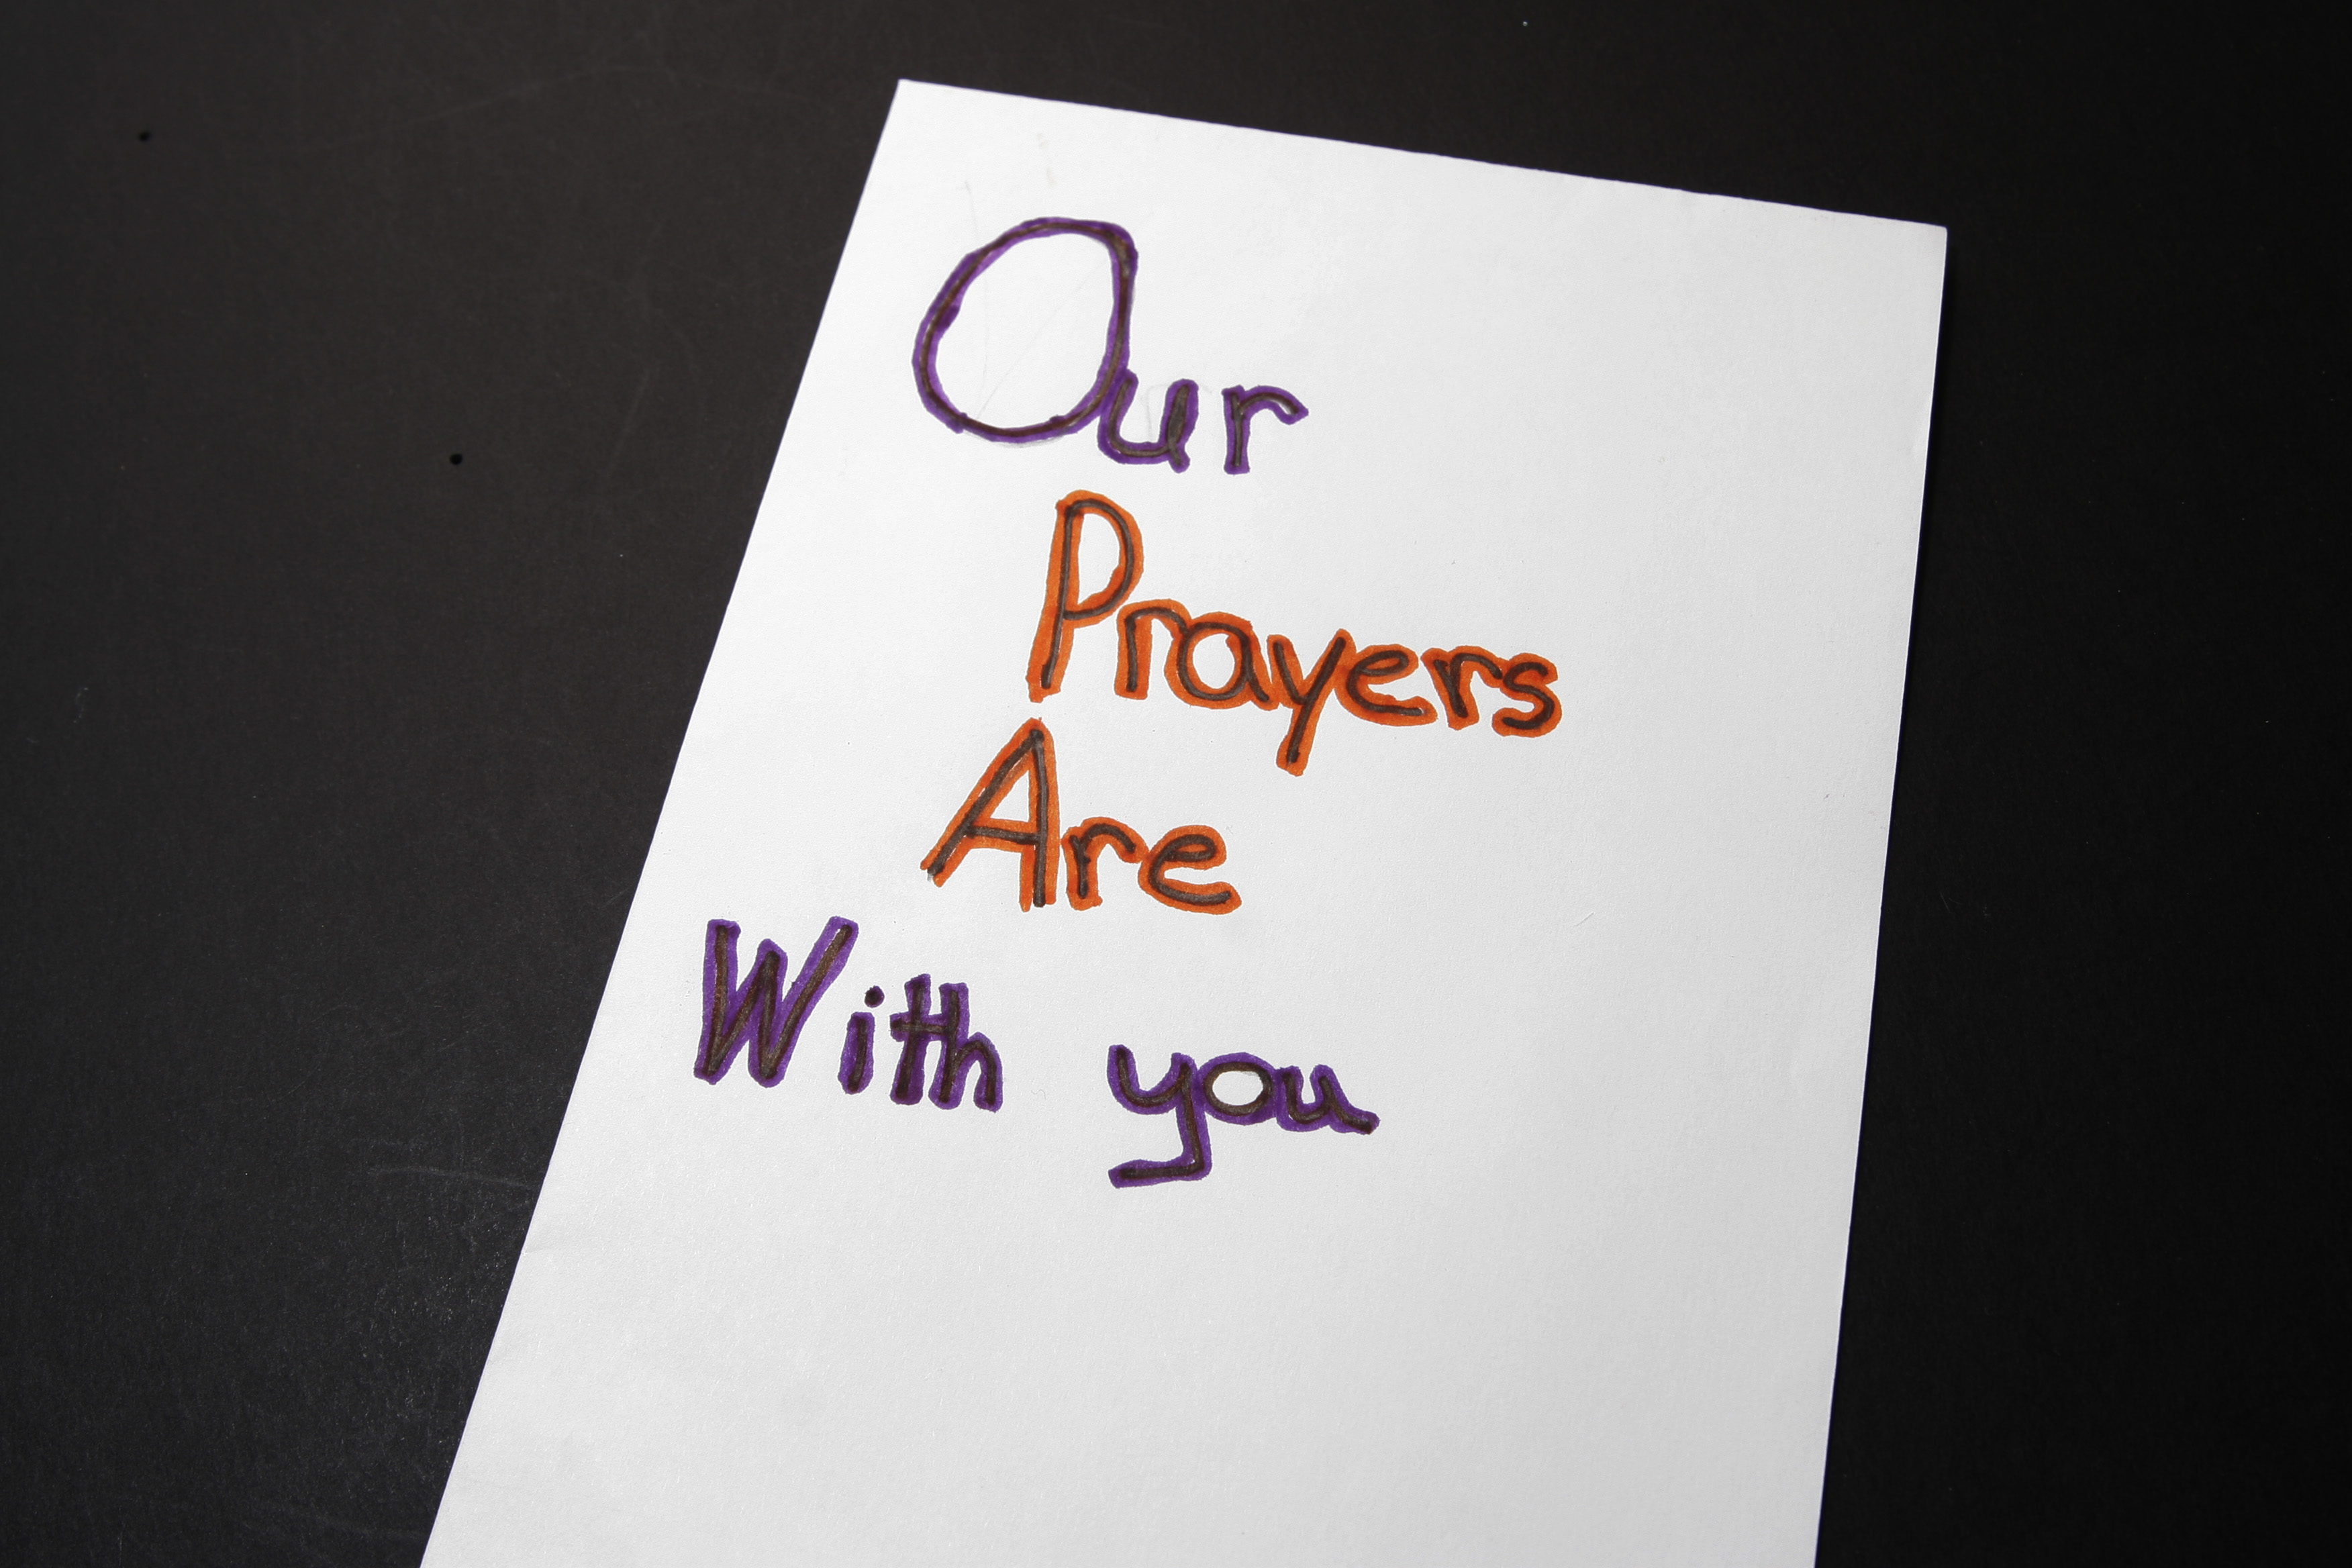 Our
Prayers
Are
With you